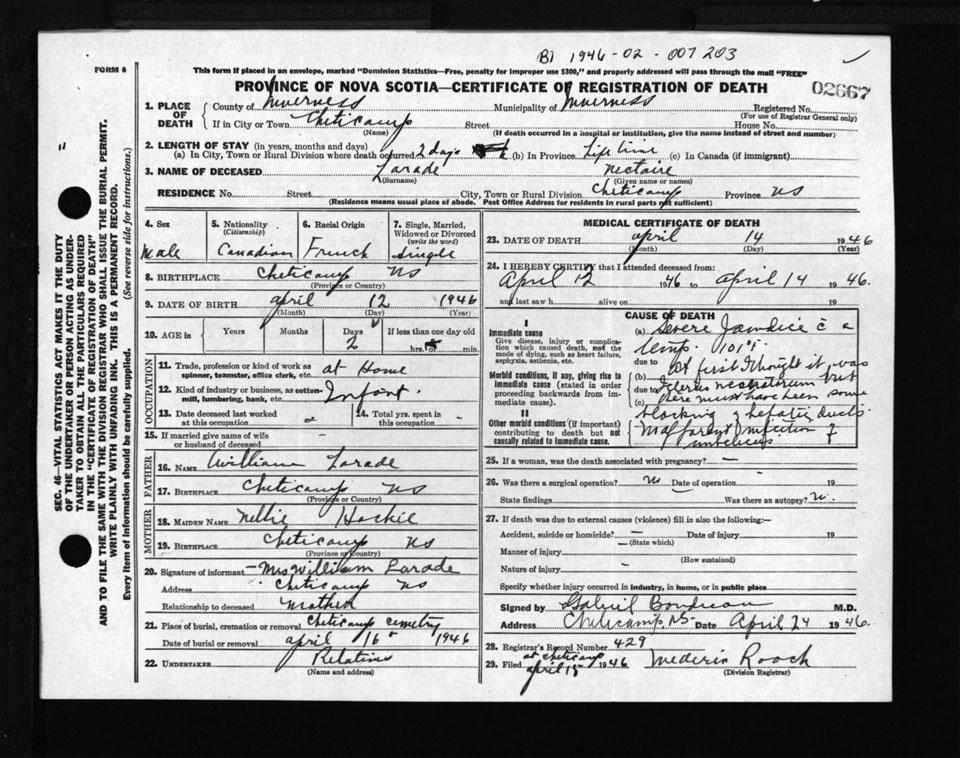 BI 1946-02-007203
FORM 6
This form if placed in an envelope, marked "Dominion Statistics—Free, penalty for improper use $300," and properly addressed will pass through the mail "FREE"
PROVINCE OF NOVA SCOTIA—CERTIFICATE OF REGISTRATION OF DEATH
02667
1. PLACE OF DEATH County of Inverness Municipality of Inverness Registered No.
(For use of Registrar General only)
If in City or Town Cheticamp Street House No.
(Name) (If death occurred in a hospital or institution, give the name instead of street and number)
2. LENGTH OF STAY (in years, months and days)
(a) In City, Town or Rural Division where death occurred 2 days (b) In Province Life time (c) In Canada (if immigrant)
3. NAME OF DECEASED Larade Nectaire
(Surname) (Given name or names)
RESIDENCE No. Street City, Town or Rural Division Cheticamp Province NS
(Residence means usual place of abode. Post Office Address for residents in rural parts not sufficient)
SEC. 46—VITAL STATISTICS ACT MAKES IT THE DUTY
OF THE UNDERTAKER OR PERSON ACTING AS UNDER-
TAKER TO OBTAIN ALL THE PARTICULARS REQUIRED
IN THE "CERTIFICATE OF REGISTRATION OF DEATH"
AND TO FILE THE SAME WITH THE DIVISION REGISTRAR WHO SHALL ISSUE THE BURIAL PERMIT.
WRITE PLAINLY WITH UNFADING INK. THIS IS A PERMANENT RECORD.
Every item of information should be carefully supplied. (See reverse side for instructions.)
4. Sex 5. Nationality 6. Racial Origin 7. Single, Married,
(Citizenship) Widowed or Divorced
(write the word)
Male Canadian French Single
8. BIRTHPLACE Cheticamp NS
(Province or Country)
9. DATE OF BIRTH April 12 1946
(Month) (Day) (Year)
10. AGE in Years Months Days If less than one day old
2 hrs. or min.
OCCUPATION
11. Trade, profession or kind of work as at Home
spinner, teamster, office clerk, etc.
12. Kind of industry or business, as cotton- Infant
mill, lumbering, bank, etc.
13. Date deceased last worked 14. Total yrs. spent in
at this occupation at this occupation
15. If married give name of wife
or husband of deceased
FATHER
16. NAME William Larade
17. BIRTHPLACE Cheticamp NS
(Province or Country)
MOTHER
18. MAIDEN NAME Nellie Hackie
19. BIRTHPLACE Cheticamp NS
(Province or Country)
20. Signature of informant Mrs William Larade
Address Cheticamp NS
Relationship to deceased Mother
21. Place of burial, cremation or removal Cheticamp cemetry
Date of burial or removal April 16 1946
22. UNDERTAKER Relatives
(Name and address)
MEDICAL CERTIFICATE OF DEATH
23. DATE OF DEATH April 14 1946
(Month) (Day) (Year)
24. I HEREBY CERTIFY that I attended deceased from:
April 12 1946 to April 14 1946.
and last saw h alive on 19
CAUSE OF DEATH
I
Immediate cause
Give disease, injury or complica-
tion which caused death, not the
mode of dying, such as heart failure,
asphyxia, asthenia, etc.
Morbid conditions, if any, giving rise to
immediate cause (stated in order
proceeding backwards from im-
mediate cause).
II
Other morbid conditions (if important)
contributing to death but not
causally related to immediate cause.
(a) Severe Jaundice c a
temp. 101°F.
due to At first I thought it was
(b) Icterus neonatorum but
due to
(c) there must have been some
blocking of hepatic ducts.
infection of
umbelicus.
25. If a woman, was the death associated with pregnancy? —
26. Was there a surgical operation? Date of operation 19
State findings Was there an autopsy?
27. If death was due to external causes (violence) fill in also the following:—
Accident, suicide or homicide? — Date of injury 19
(State which)
Manner of injury
(How sustained)
Nature of injury
Specify whether injury occurred in industry, in home, or in public place
Signed by Gabriel Boudreau M.D.
Address Cheticamp, NS Date April 24 1946.
28. Registrar's Record Number 429
at Cheticamp
29. Filed April 15 1946 Mederic Roach
(Division Registrar)